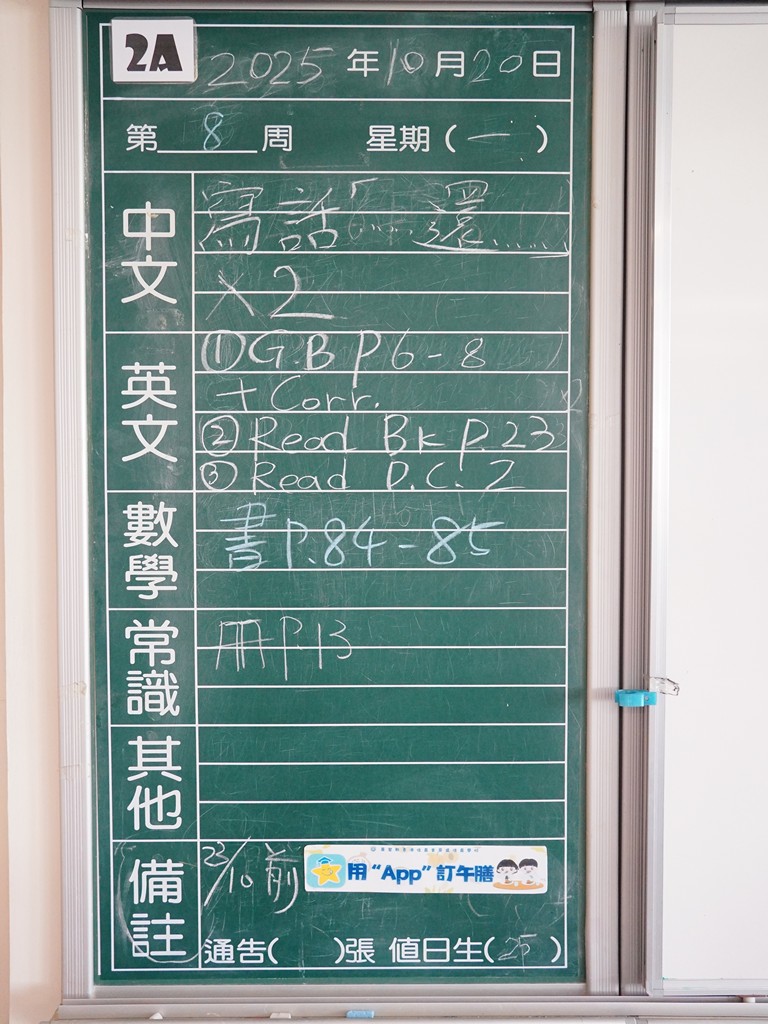 2A
2025年10月20日
第8周 星期(一)
中文
寫話「……還……」
×2
英文
①G.B P6-8
+ Corr.
② Read Bk P.23
③ Read P.C. 2
數學
書P.84-85
常識
冊P.13
其他
備註
22/10前
用“App”訂午膳
通告( )張 值日生(25)